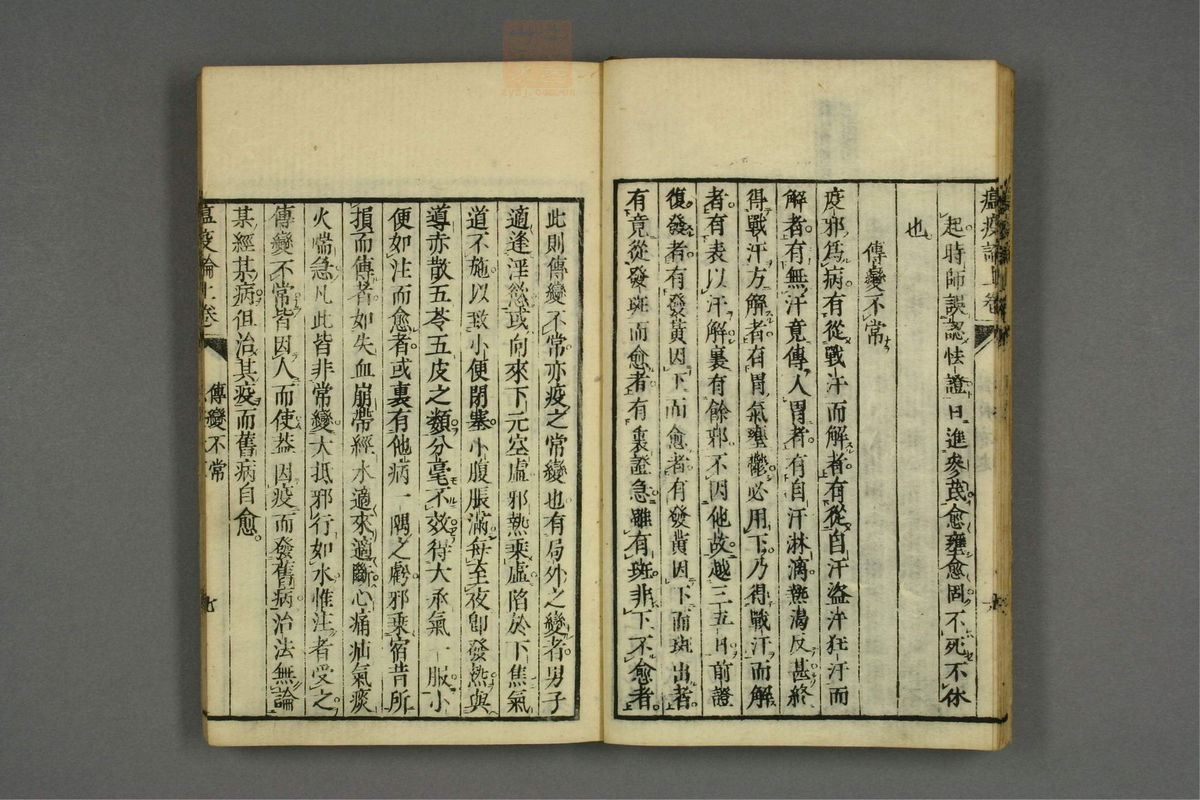 瘟疫論上卷
起時師誤認怯證日進參芪愈壅愈固不死不休
也
傳變不常
疫邪爲病有從戰汗而解者有從自汗盜汗狂汗而
解者有無汗竟傳入胃者有自汗淋漓熱渴反甚終
得戰汗方解者有胃氣壅鬱必用下乃得戰汗而解
者有表以汗解裏有餘邪不因他故越三五日前證
復發者有發黃因下而愈者有發黃因下而斑出者
有竟從發斑而愈者有裏證急雖有斑非下不愈者
此則傳變不常亦疫之常變也有局外之變者男子
適逢淫慾或向來下元空虛邪熱乘虛陷於下焦氣
道不施以致小便閉塞小腹脹滿每至夜卽發熱與
導赤散五苓五皮之類分毫不效得大承氣一服小
便如注而愈者或裏有他病一隅之虧邪乘宿昔所
損而傳者如失血崩帶經水適來適斷心痛疝氣痰
火喘急凡此皆非常變大抵邪行如水惟注者受之
傳變不常皆因人而使葢因疫而發舊病治法無論
某經某病但治其疫而舊病自愈
瘟疫論上卷
傳變不常
七